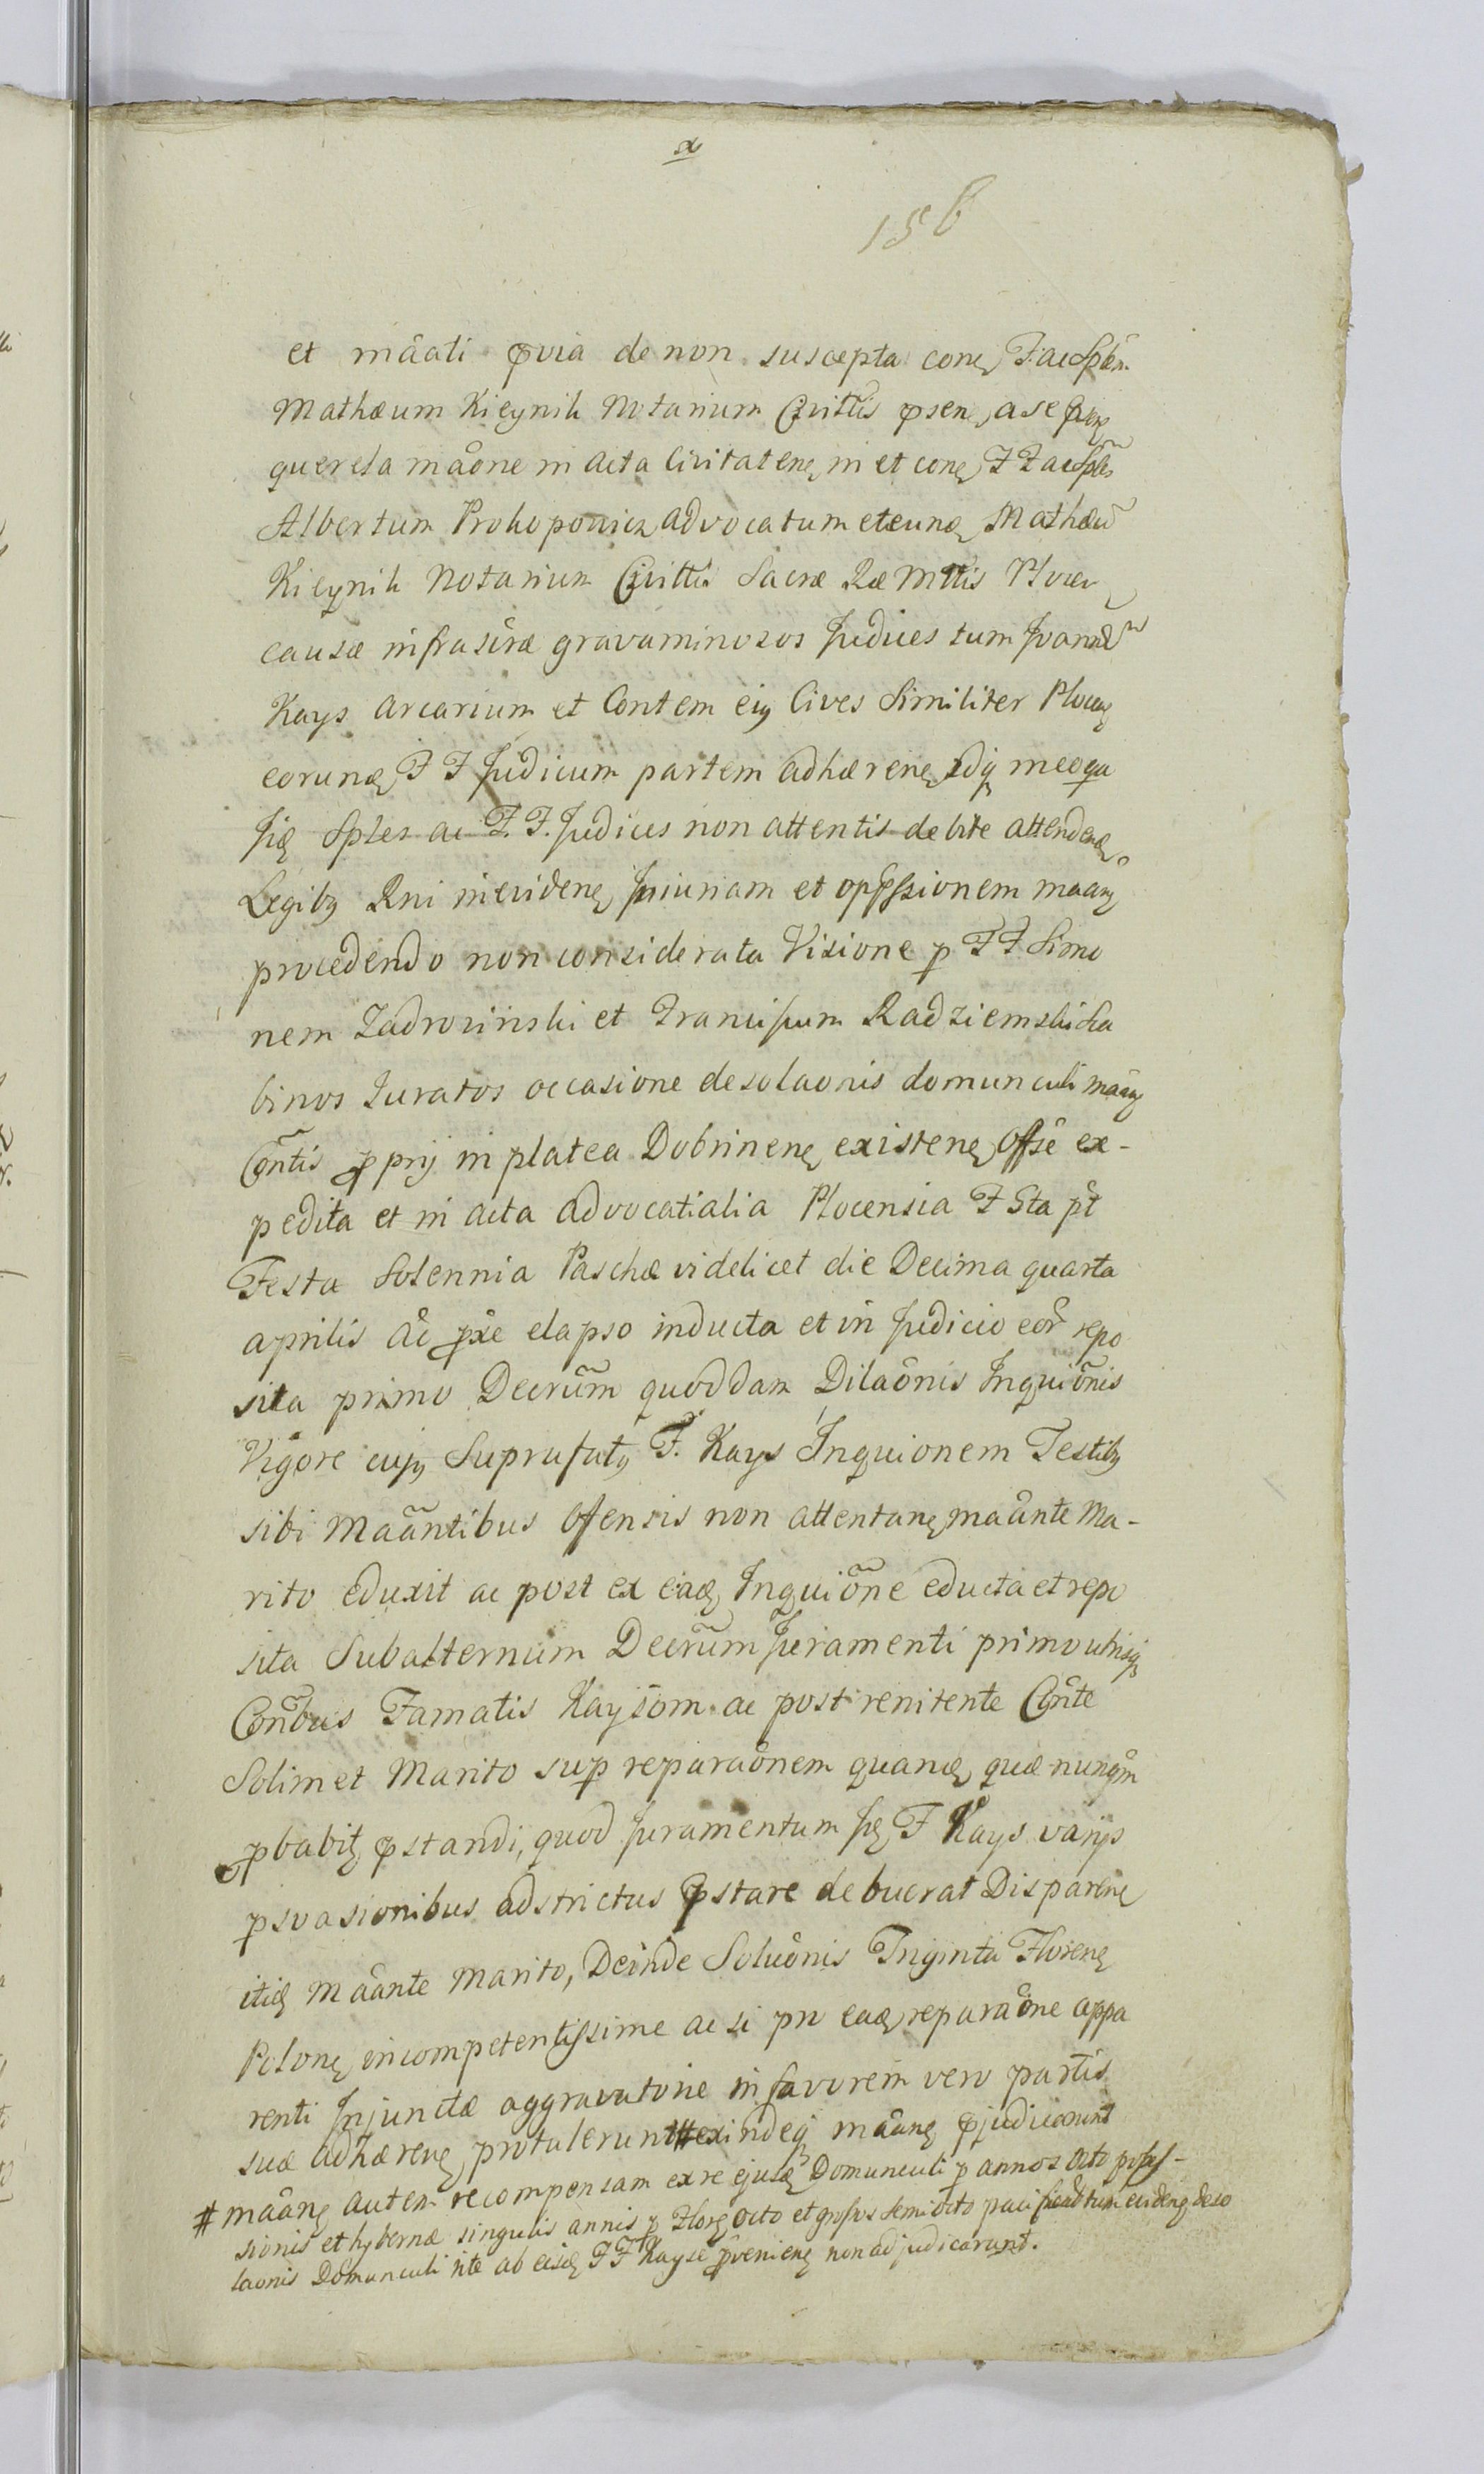 x
156
et mâati qvia de non suscepta conę F. ac Spbēm
Mathæum Kicynik Notarium Civittis psenę a se
querela mâone in acta Civitatenę in et conę F F ac Splēs
Albertum Prokopowicz advocatum et eundę Mathæū
Kicynik Notarium Civittis Sacræ Ræ Mttis Plocen
causæ infrascræ gravaminosos Judices tum Joannē
Kays arcarium et Contem eiꝰ Cives Similiter Plocenę
eorundę F F Judicum partem adhærenę idq̢ meo qu
ijdę Sples ac F. F. Judices non attentis debite attendenę
Legibꝰ Rni in evidenę Iniuriam et oppssionem maanę
procedendo non considerata Visione p F F Simo
nem Zadrozinski et Franciscum Radziemski Sca
binos Juratos occasione desolaonis domunculi maanę
Contis pprij in platea Dobrinenę existenę Offse ex-
pedita et in acta advocatialia Plocensia F Sta pt
Festa Solennia Paschæ videlicet die Decima quarta
aprilis Ac pxe elapso inducta et in Judicio eor repo
sita primo Decrūm quoddam Dilaônis Inquiõnis
Vigore cujꝰ Suprafatꝰ F. Kays Inquionem Testibꝰ
sibi Maãntibus Ofensis non attentanę maânte Ma-
rito eduxit ac post ex eadę Inquiõne educta et repo
sita Subalternum Decrūm Juramenti primo utrisq̢
Conbus Famatis Kaysom ac post renitente Conte
Solimet Marito sup reparaônem quandę quæ nunqm
pbabitę pstandi, quod Juramentum ijdę F Kays varijs
psvasionibus adstrictus pstare debuerat Disparenę
itidę Mâante Marito, Deinde Soluônis Triginta Florenę
Polonę incompetentissime ac si pro eadę reparaône appa
renti Injunctæ aggravatorie in favorem vero partis
suæ adhærenę protulerunt # exindeq̢ mâanę pjudicarunt
# mâanę autem recompensam ex re ejusdę Domunculi p annos octo posses-
sionis et hybernæ singulis annis p Florę octo et grosos semiocto paci ficend tum evidenę deso
laonis Domunculi rite ab eisdę F F Kayse pvenienę non adjudicarunt.